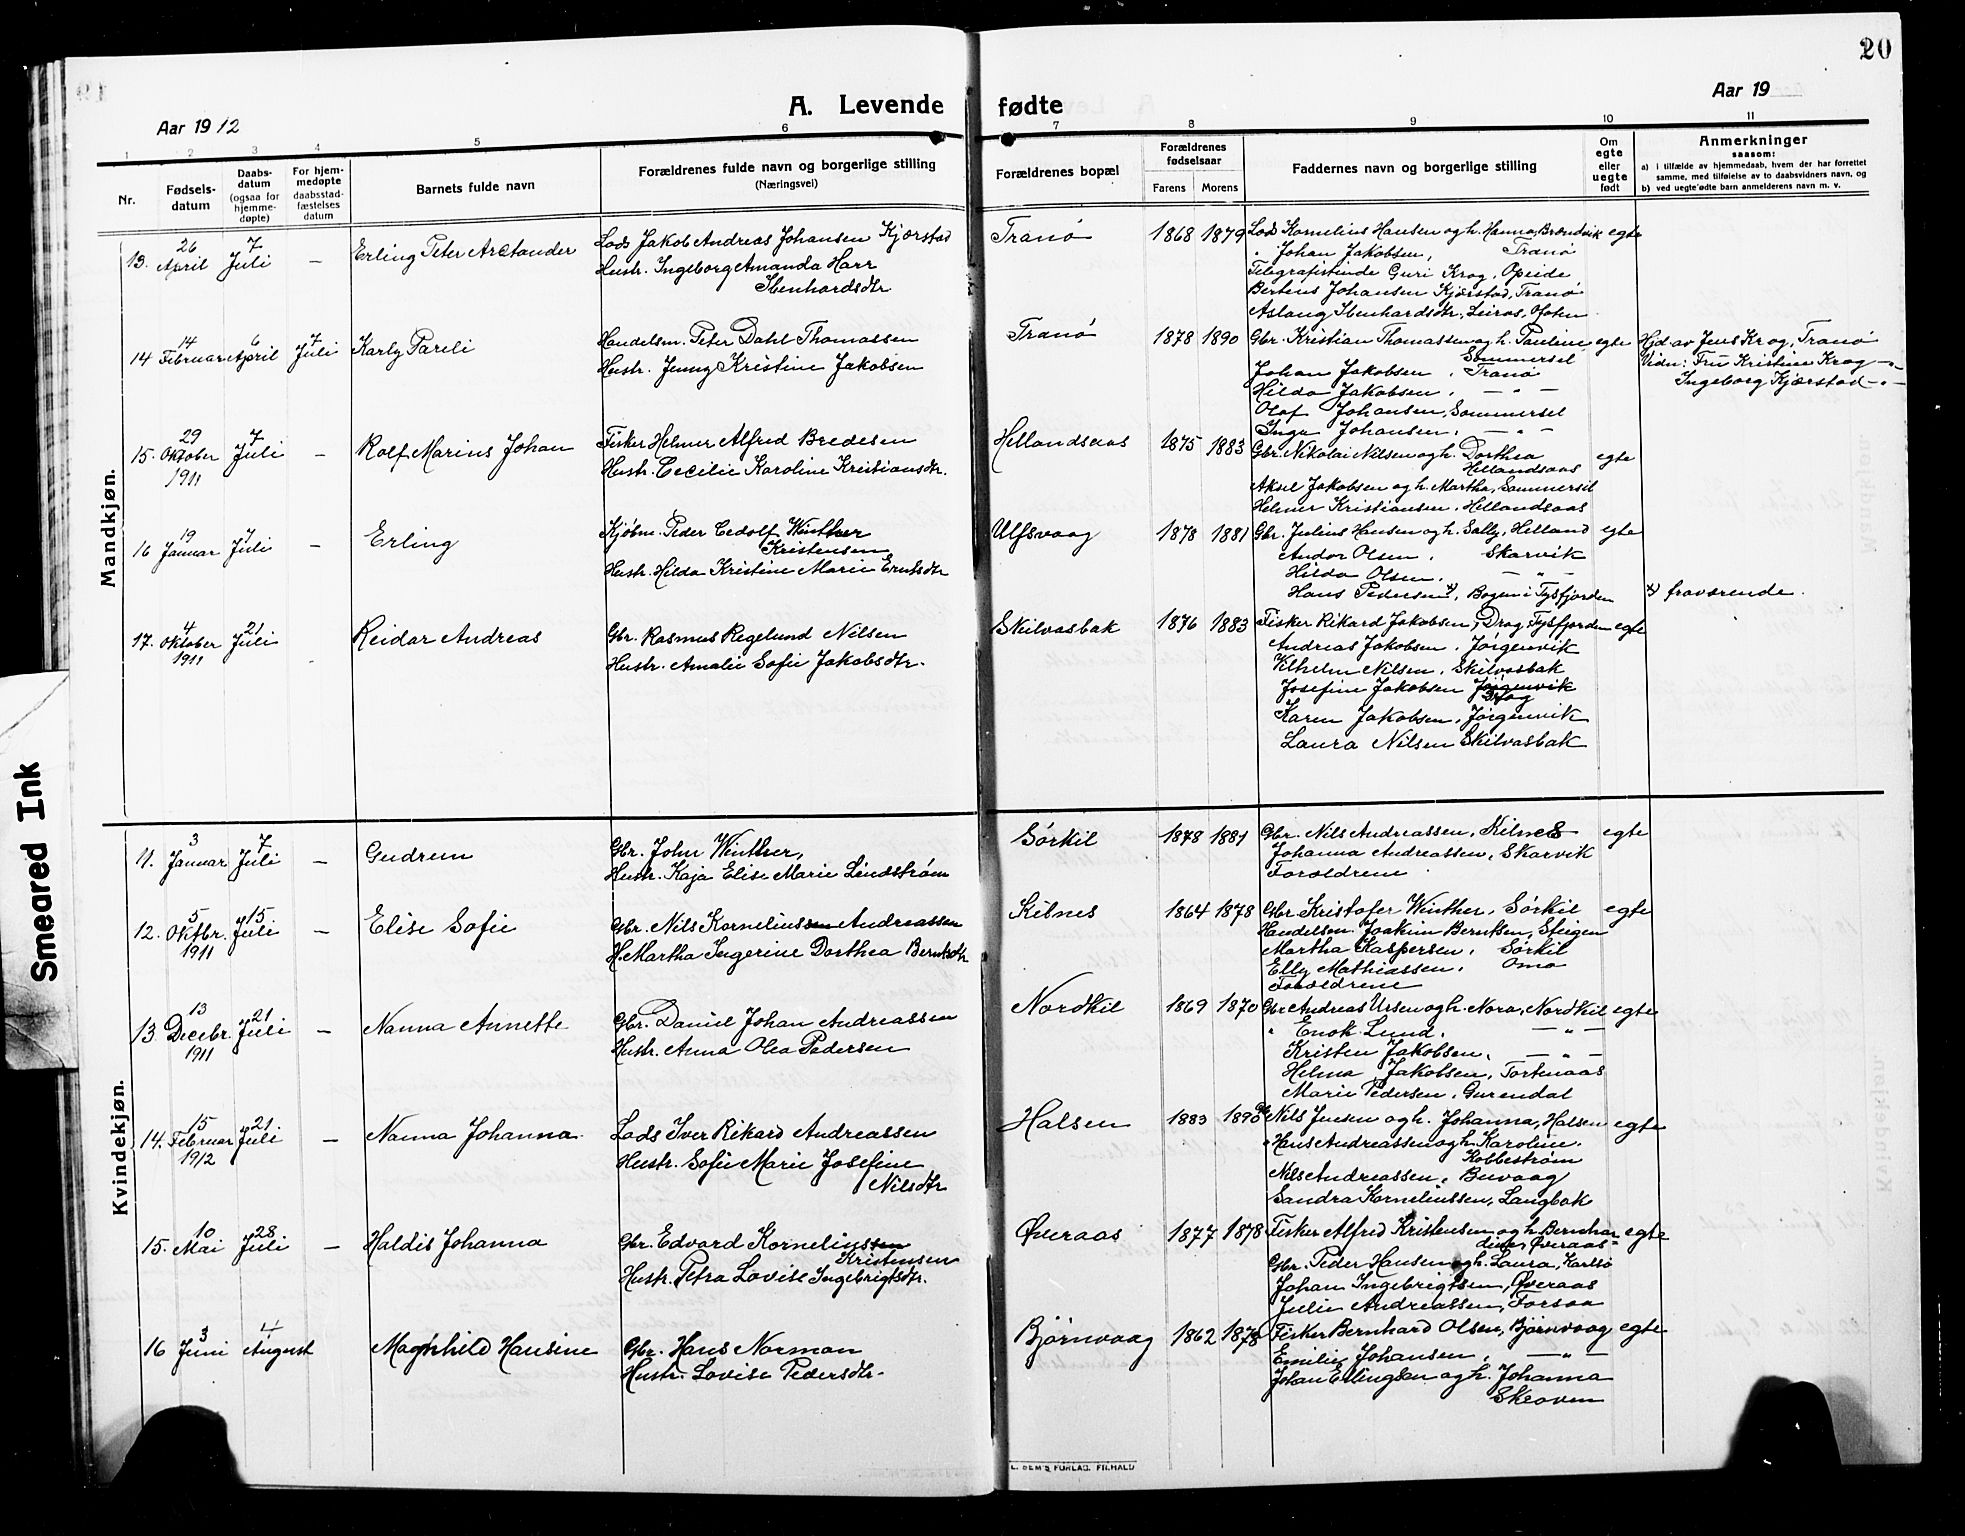 20
A. Levende fødte
Aar 1912
Aar 19
1 2 3 4 5 6 7 8 9 10 11
Nr.
Fødsels-
datum
Daabs-
datum
(ogsaa for
hjemme-
døpte)
For hjem-
medøpte
daabsstad-
fæstelses
datum
Barnets fulde navn
Forældrenes fulde navn og borgerlige stilling
(Næringsvei)
Forældrenes bopæl
Forældrenes
fødselsaar
Farens Morens
Faddernes navn og borgerlige stilling
Om
egte
eller
uegte
født
Anmerkninger
saasom:
a) i tilfælde av hjemmedaab, hvem der har forrettet
samme, med tilføielse av to daabsvidners navn, og
b) ved uegte fødte barn anmelderens navn m. v.
Mandkjøn.
13. 26 April 7 Juli – Erling Peter Arctander
Lods Jakob Andreas Johansen Kjørstad
Hustr. Ingeborg Amanda Harr
Ibenhardsdtr
Tranø 1868 1879
Lods Kornelius Hansen og h. Hanna, Brændvik egte
" Johan Jakobsen, Tranø
Telegrafistinde Guri Krog, Opeide
Bertens Johansen Kjørstad, Tranø
Aslaug Ibenhardsdtr, Leiros, Ofoten
14 14 Februar 6 April 7 Juli Karly Pareli
Handelsm. Peter Dahl Thomassen
Hustr. Jenny Kristine Jakobsen
Tranø 1878 1890
Gbr. Kristian Thomassen og h. Pauline egte
Sommersel
Johan Jakobsen, Tranø
Hilda Jakobsen, – " –
Olaf Johansen, Sommersel
Inga Johansen, – " –
Hjd. av Jens Krog, Tranø
Vidn: Fru Kristine Krog – " –
Ingeborg Kjærstad – " –
15. 29 Oktober 1911 7 Juli – Rolf Marius Johan
Fisker Helmer Alfred Bredesen
Hustr. Cecilie Karoline Kristiansdtr.
Hellandsaas 1875 1883
Gbr. Nikolai Nilsen og h. Dorthea egte
Hellandsaas
Aksel Jakobsen og h. Martha, Sommersel
Helmer Kristiansen, Hellandsaas
16 19 Januar 7 Juli – Erling
Kjøbm. Peder Cedolf Winther
Kristensen
Hustr. Hilda Kristine Marie Erntsdtr
Ulfsvaag 1878 1881
Gbr. Julius Hansen og h. Sally, Helland egte
Andor Olsen, Skarvik
Hilda Olsen, – " –
Hans Pedersen x), Bogen i Tysfjorden
x) fraværende.
17. 4 Oktober 1911 21 Juli Reidar Andreas
Gbr. Rasmus Regelund Nilsen
Hustr. Amalie Sofie Jakobsdtr.
Skilvasbak 1876 1883
Fisker Rikard Jakobsen, Drag, Tysfjorden egte
Andreas Jakobsen, Jørgenvik
Vilhelm Nilsen, Skilvasbak
Josefine Jakobsen Jørgenvik
Drag
Karen Jakobsen, Jørgenvik
Laura Nilsen Skilvasbak
Kvindekjøn.
11. 3 Januar 7 Juli – Gudrun
Gbr. John Winther,
Hustr. Kaja Elise Marie Lindstrøm
Sørkil 1878 1881
Gbr. Nils Andreassen, Kilnes egte
Johanna Andreassen, Skarvik
Forældrene
12. 5 Oktbr. 1911 15 Juli – Elise Sofie
Gbr. Nils Korneliussen Andreassen
H. Martha Ingerine Dorthea Berntsdtr
Kilnes 1864 1878
Gbr. Kristofer Winther, Sørkil egte
Handelsm. Joakim Berntsen, Steigen
Martha Kaspersen, Sørkil
Elly Mathiassen, Omo
Forældrene
13. 13 Decebr. 1911 21 Juli – Nanna Annette
Gbr. Daniel Johan Andreassen
Hustr. Anna Olea Pedersen
Nordkil 1869 1870
Gbr Andreas Ursen og h. Nora, Nordkil egte
" Enok Lund, – " –
Kristen Jakobsen, – " –
Helma Jakobsen, Tortenaas
Marie Pedersen, Gurendal
14. 15 Februar 1912 21 Juli – Nanna Johanna.
Lods Iver Rikard Andreassen
Hustr. Sofie Marie Josefine
Nilsdtr
Halsen 1883 1890
Gbr Nils Jensen og h. Johanna, Halsen egte
" Hans Andreassen og h. Karoline.
Kobbestrøm
Nils Andreassen, Buvaag
Sandra Korneliussen, Langbak
15. 10 Mai 28 Juli – Haldis Johanna
Gbr. Edvard Korneliussen
Kristensen
Hustr. Petra Lovise Ingebrigtsdtr.
Øveraas 1877 1878
Fisker Alfred Kristensen og h. Bernhar egte
dine, Øveraas
Gbr. Peder Hansen og h. Laura, Karlsø
Johan Ingebrigtsen, Øveraas
Julie Andreassen, Forsaa
16 3 Juni 4 August Maghild Hansine
Gbr. Hans Norman
Hustr. Lovise Pedersdtr.
Bjørnvaag 1862 1878
Fisker Bernhard Olsen, Bjørnvaag egte
Emilie Johansen, – " –
Johan Erlingsen og h. Johanna
Skeoven
Smeared Ink